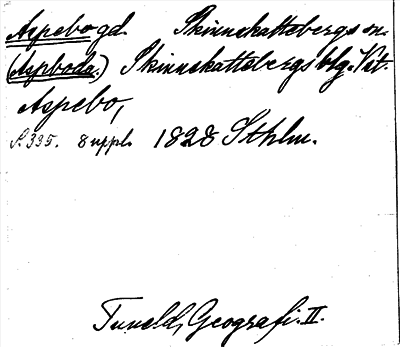 Aspebo gd. Skinnskattebergs sn.
(Aspboda.) Skinnskattebergs blg. Vst.
Aspebo,
S. 335. 8 uppl. 1828 Sthlm.
Tuneld, Geografi. II.